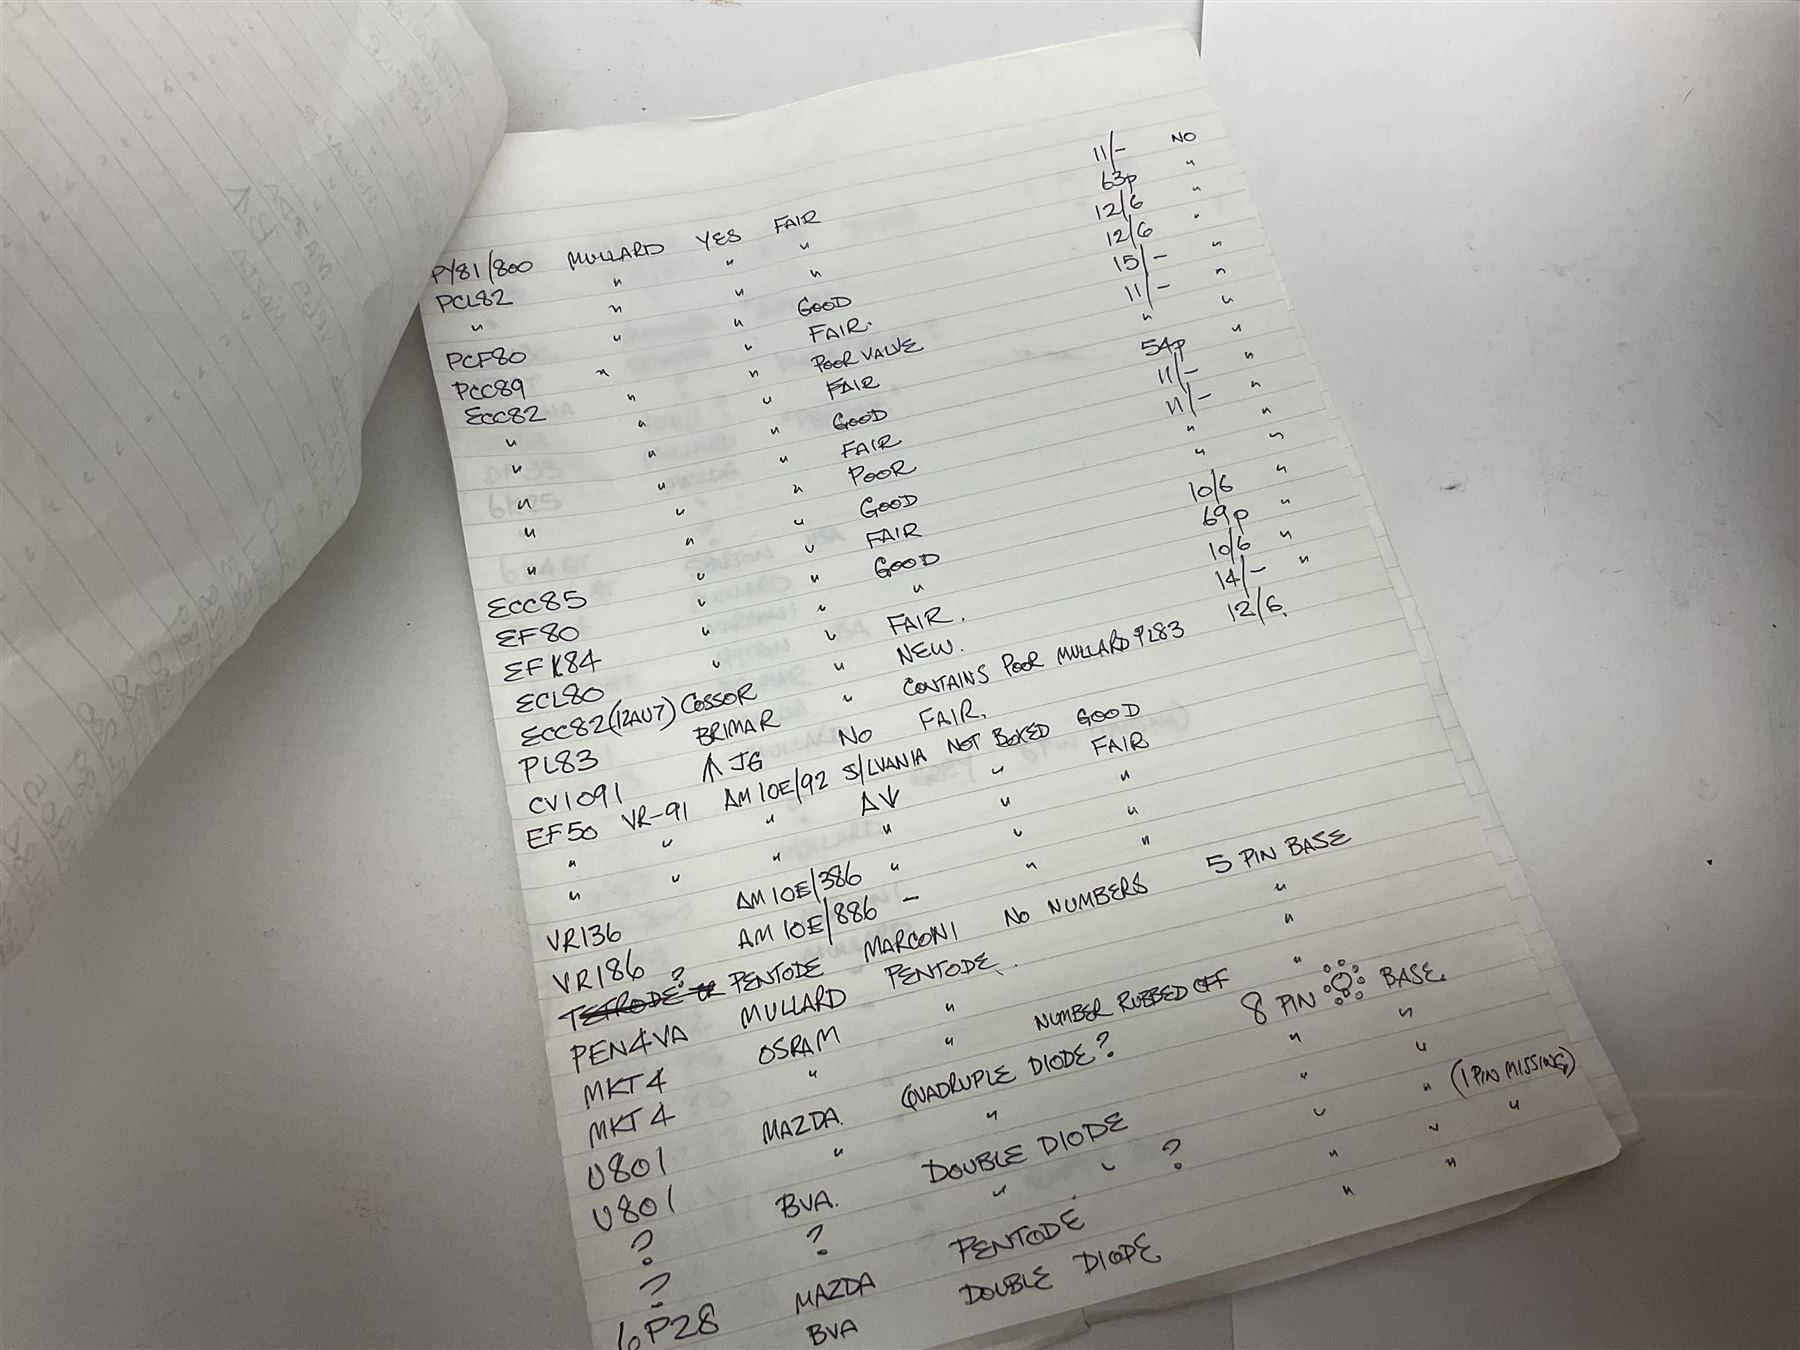 PY81/800 MULLARD YES FAIR 11/- NO
PCL82 " " " 63p "
" " " " 12/6 "
PCF80 " " GOOD 12/6 "
PCC89 " " FAIR. 15/- "
ECC82 " " POOR VALVE 11/- "
" " " FAIR " "
" " " GOOD 54p "
" " " FAIR 11/- "
" " " POOR 11/- "
" " " GOOD " "
ECC85 " " FAIR " "
EF80 " " GOOD 10/6 "
EF184 " " " 69p "
ECL80 " " FAIR. 10/6 "
ECC82(12AU7) COSSOR " NEW. 14/- "
PL83 BRIMAR " CONTAINS POOR MULLARD PL83 12/6.
CV1091 ↑ JG NO FAIR.
EF50 VR-91 AM 10E/92 SYLVANIA NOT BOXED GOOD
" " " A↓ " FAIR
" " " " " "
VR136 AM 10E/386 " " "
VR186 AM 10E/886 - " "
TETRODE? PENTODE MARCONI NO NUMBERS 5 PIN BASE
PEN4VA MULLARD PENTODE. "
MKT4 OSRAM " "
MKT4 " " NUMBER RUBBED OFF "
U801 MAZDA. QUADRUPLE DIODE? 8 PIN BASE
U801 " " " "
? BVA. DOUBLE DIODE " "
? ? " " ? " " (1 PIN MISSING)
6P28 MAZDA PENTODE " " "
BVA DOUBLE DIODE " "